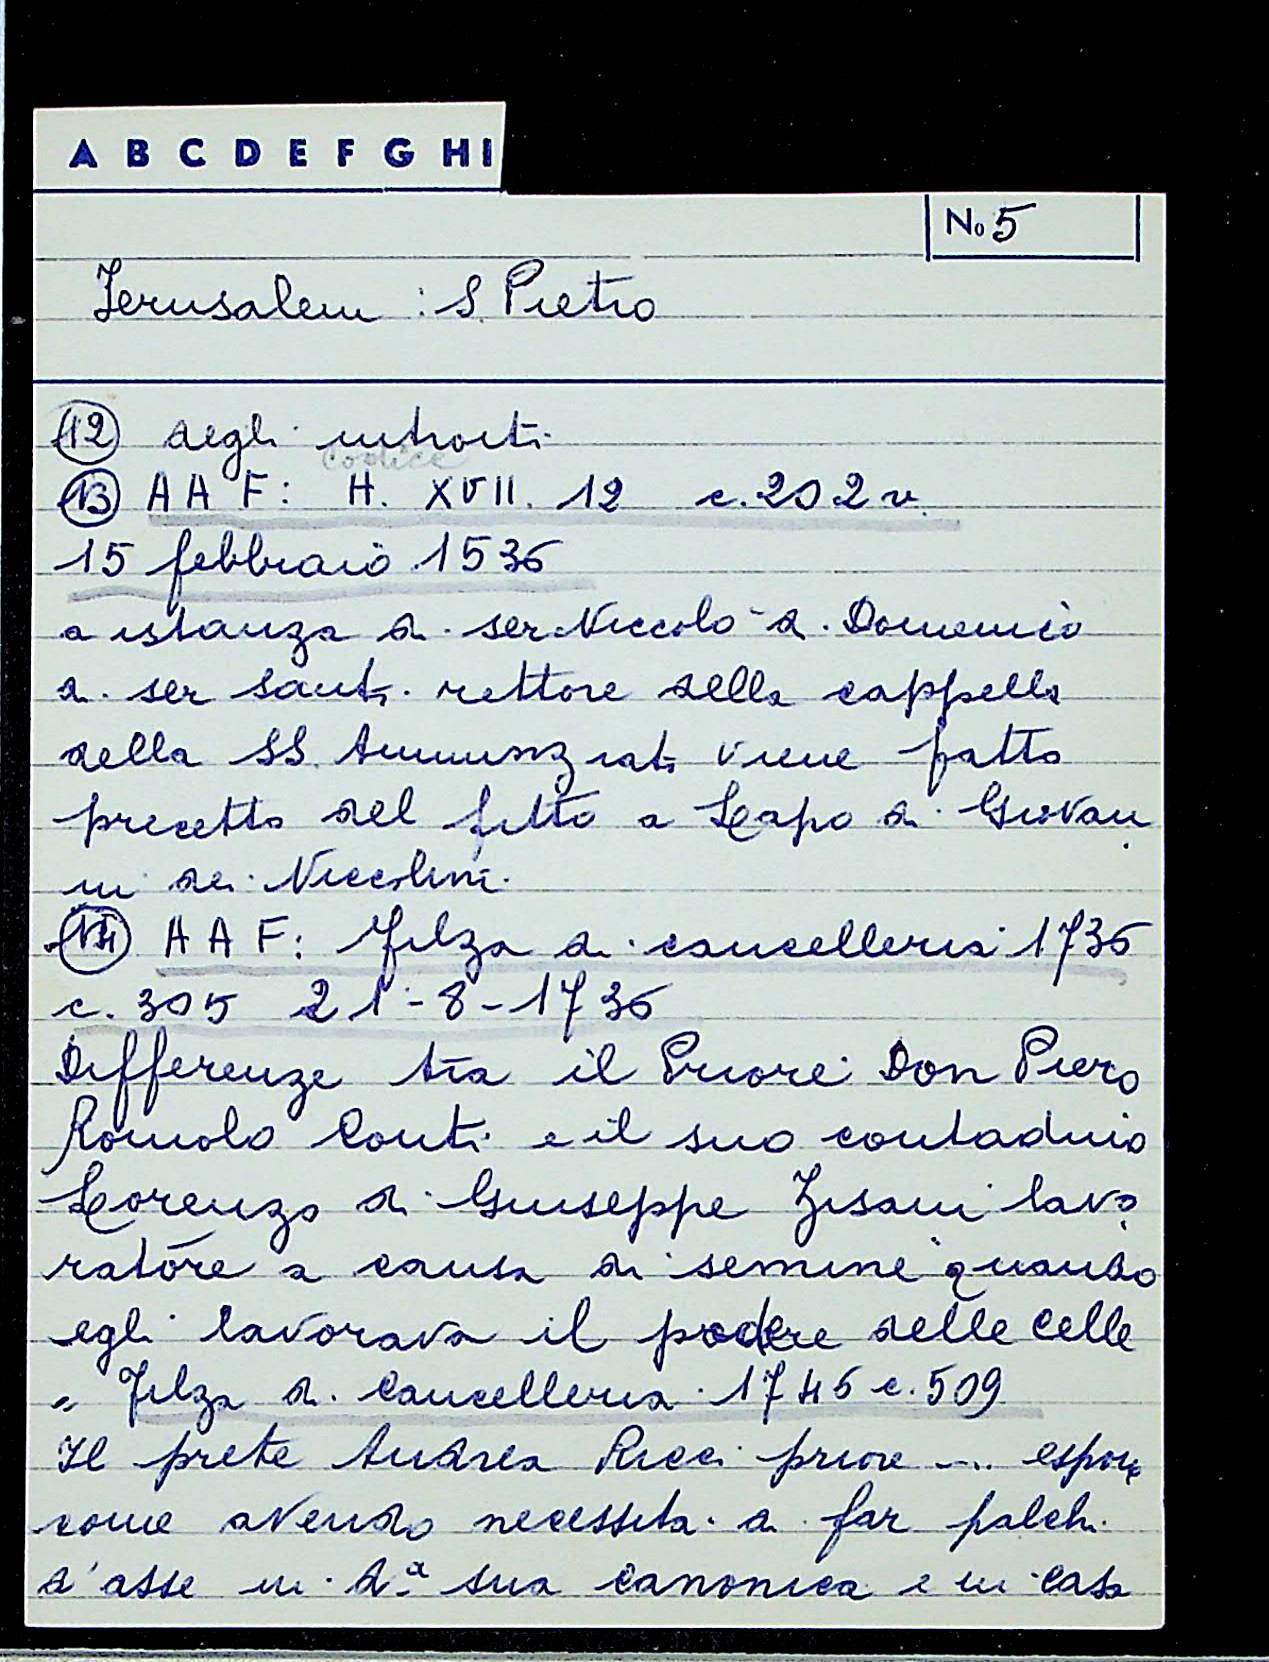 A B C D E F G H I
No 5
Jerusalem : S. Pietro
12 degli introiti
codice
13 A A F: H. XVII. 12 c. 202 v.
15 febbraio 1536
a istanza di ser Niccolò di Domenico
di ser Santi rettore della cappella
della SS. Annunziata viene fatto
precetto del fitto a Lapo di Giovan
ni dei Niccolini.
14 A A F: Filza di cancelleria 1736
c. 305 21-8-1736
Differenze tra il Priore Don Piero
Romolo Conti e il suo contadino
Lorenzo di Giuseppe Zisani lavo
ratore a causa di semine quando
egli lavorava il podere delle Celle
" Filza di Cancelleria 1746 c. 509
Il prete Andrea Ricci priore ... espone
come avendo necessità di far palchi
d'asse in d.a sua canonica e in casa